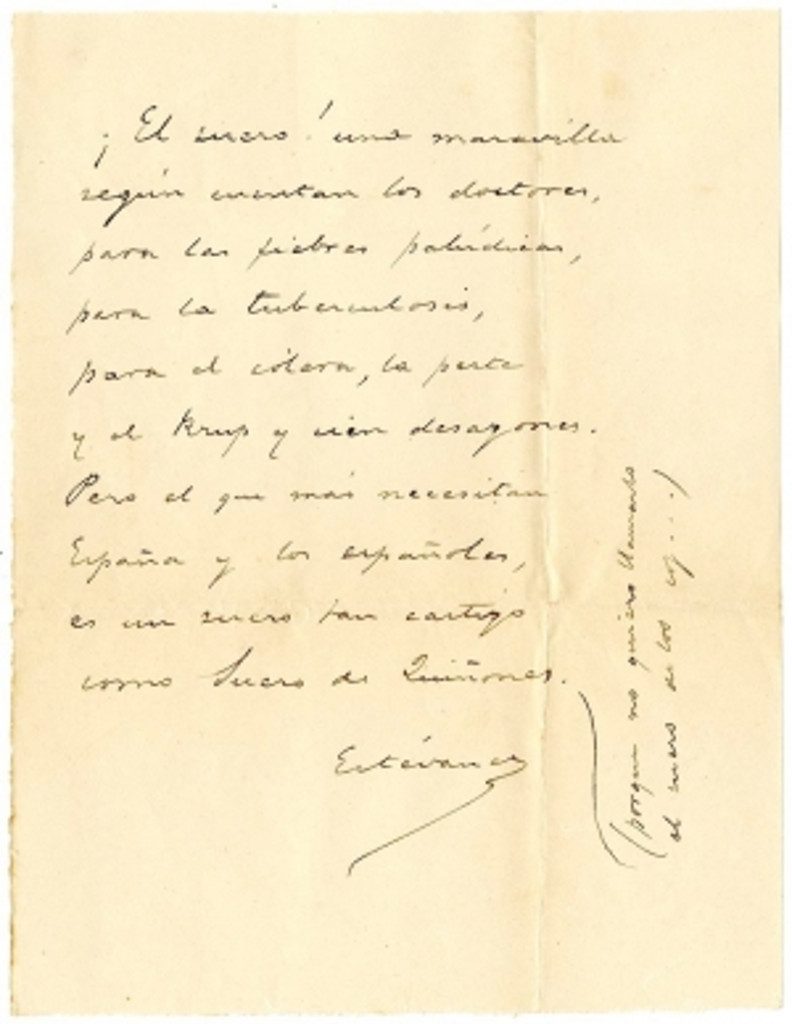 ¡El suero! una maravilla
según cuentan los doctores,
para las fiebres palúdicas,
para la tuberculosis,
para el cólera, la peste
y el Krup y cien desazones.
Pero el que más necesitan
España y los españoles,
es un suero tan castizo
como Suero de Quiñones.
Estévanez
(porque no quiero llamarlo
el suero de los coj...)